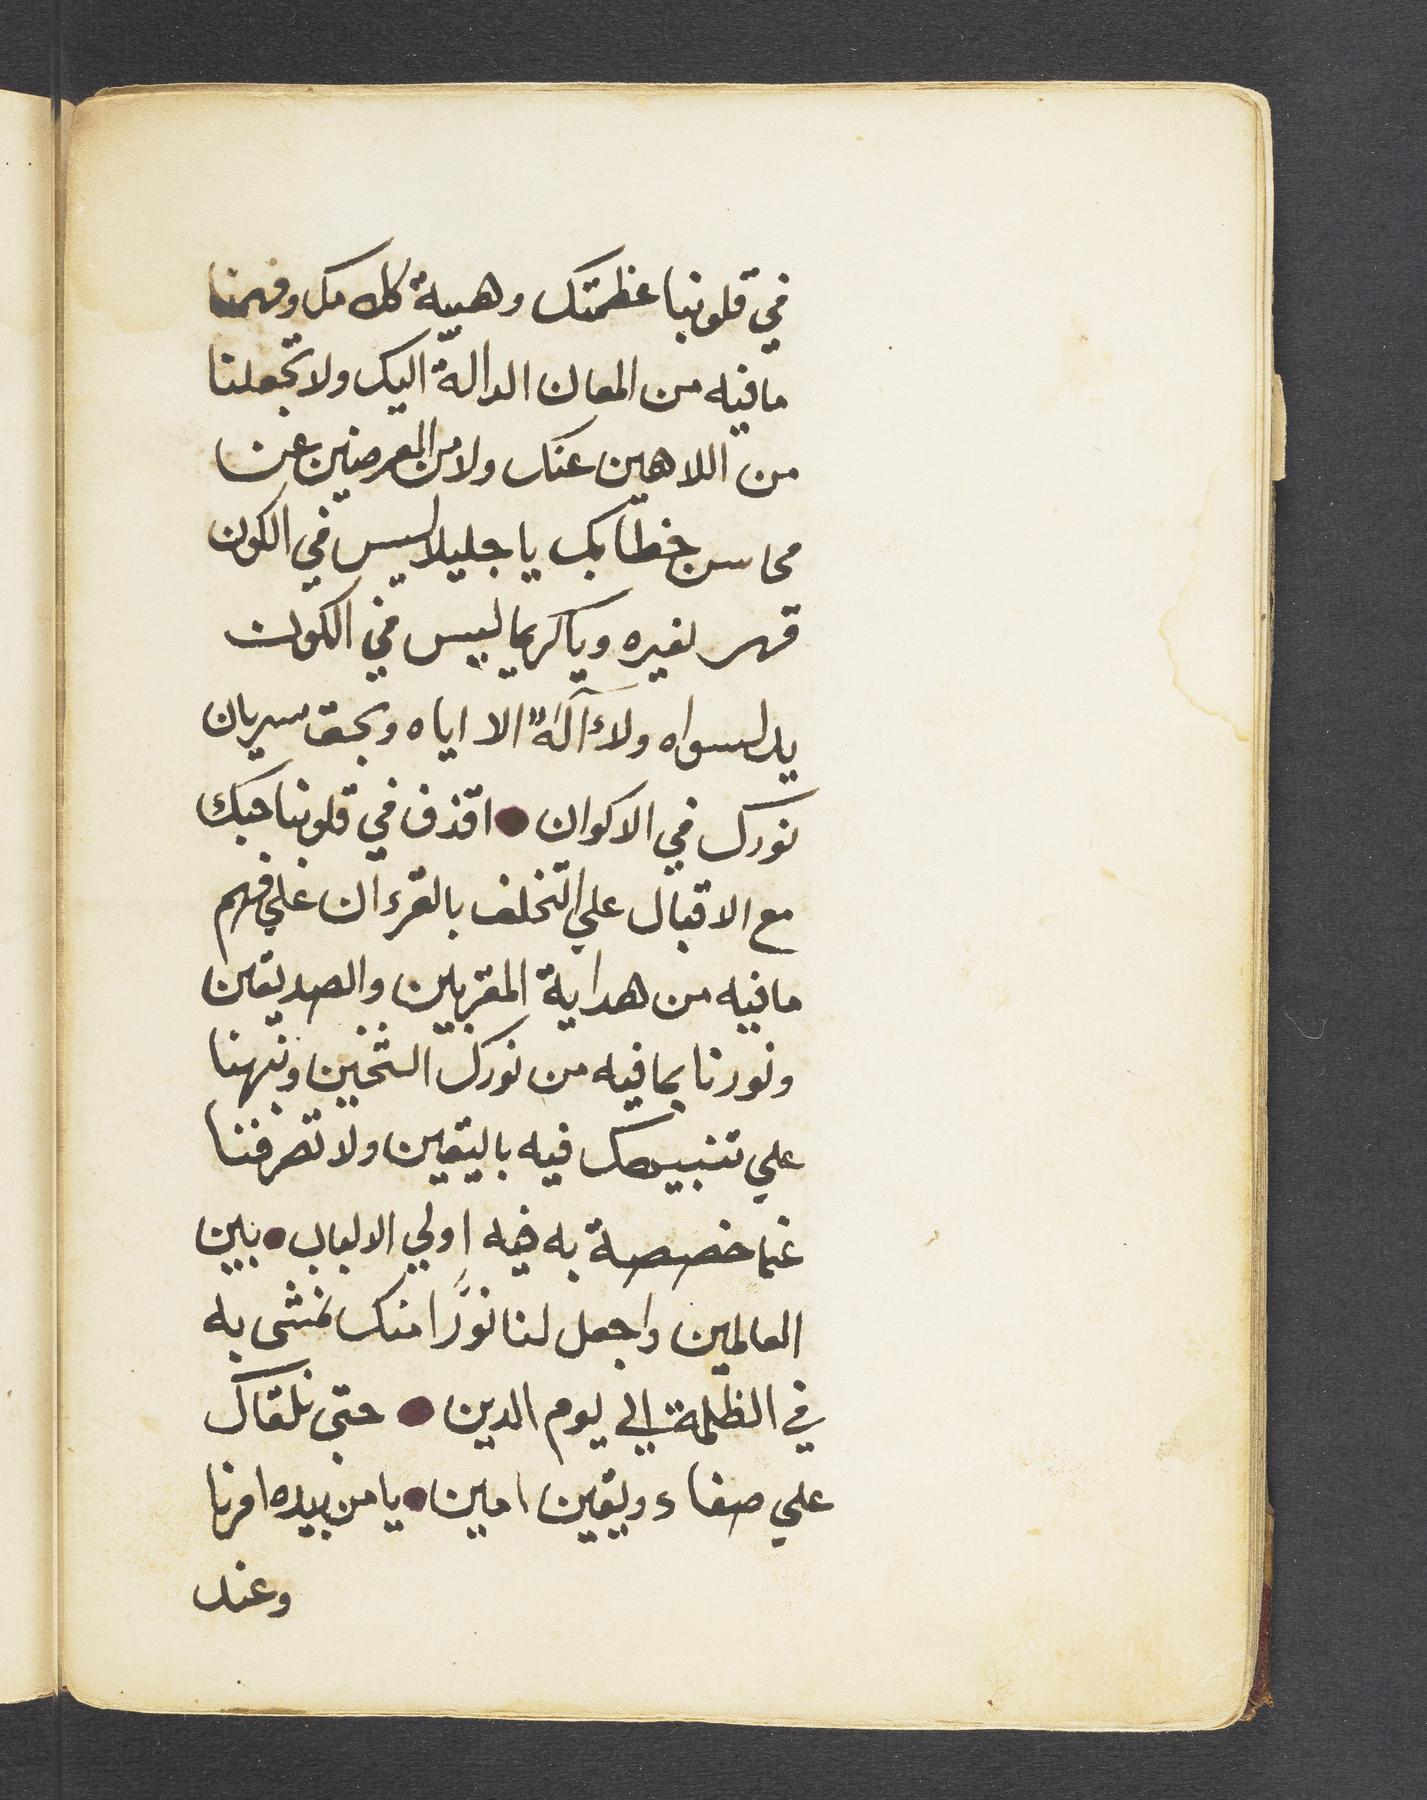 في قلوبنا عظمتك وهيبة كلامك وفهمنا
مافيه من المعان الدالة اليك ولا تجعلنا
من اللاهين عنك ولا من المعرضين عن
محاسن خطابك يا جليلا ليس في الكون
قهر لغيره ويا كريما ليس في الكون
يد لسواه ولا آله الا اياه وبحق سريان
نورك في الاكوان ● اقذف في قلوبنا حبك
مع الاقبال علي التخلف بالقرءان علي فهم
مافيه من هداية المقربين والصديقين
ونورنا بما فيه من نورك الثخين ونبهنا
علي تنبيهك فيه باليقين ولا تصرفنا
عما خصصة به فيه اولي الالباب ● بين
العالمين واجعل لنا نورًا منك نمشى به
في الظلمة الي يوم الدين ● حتى نلقاك
علي صفاء ويقين امين ● يا من بيده امرنا
وعند